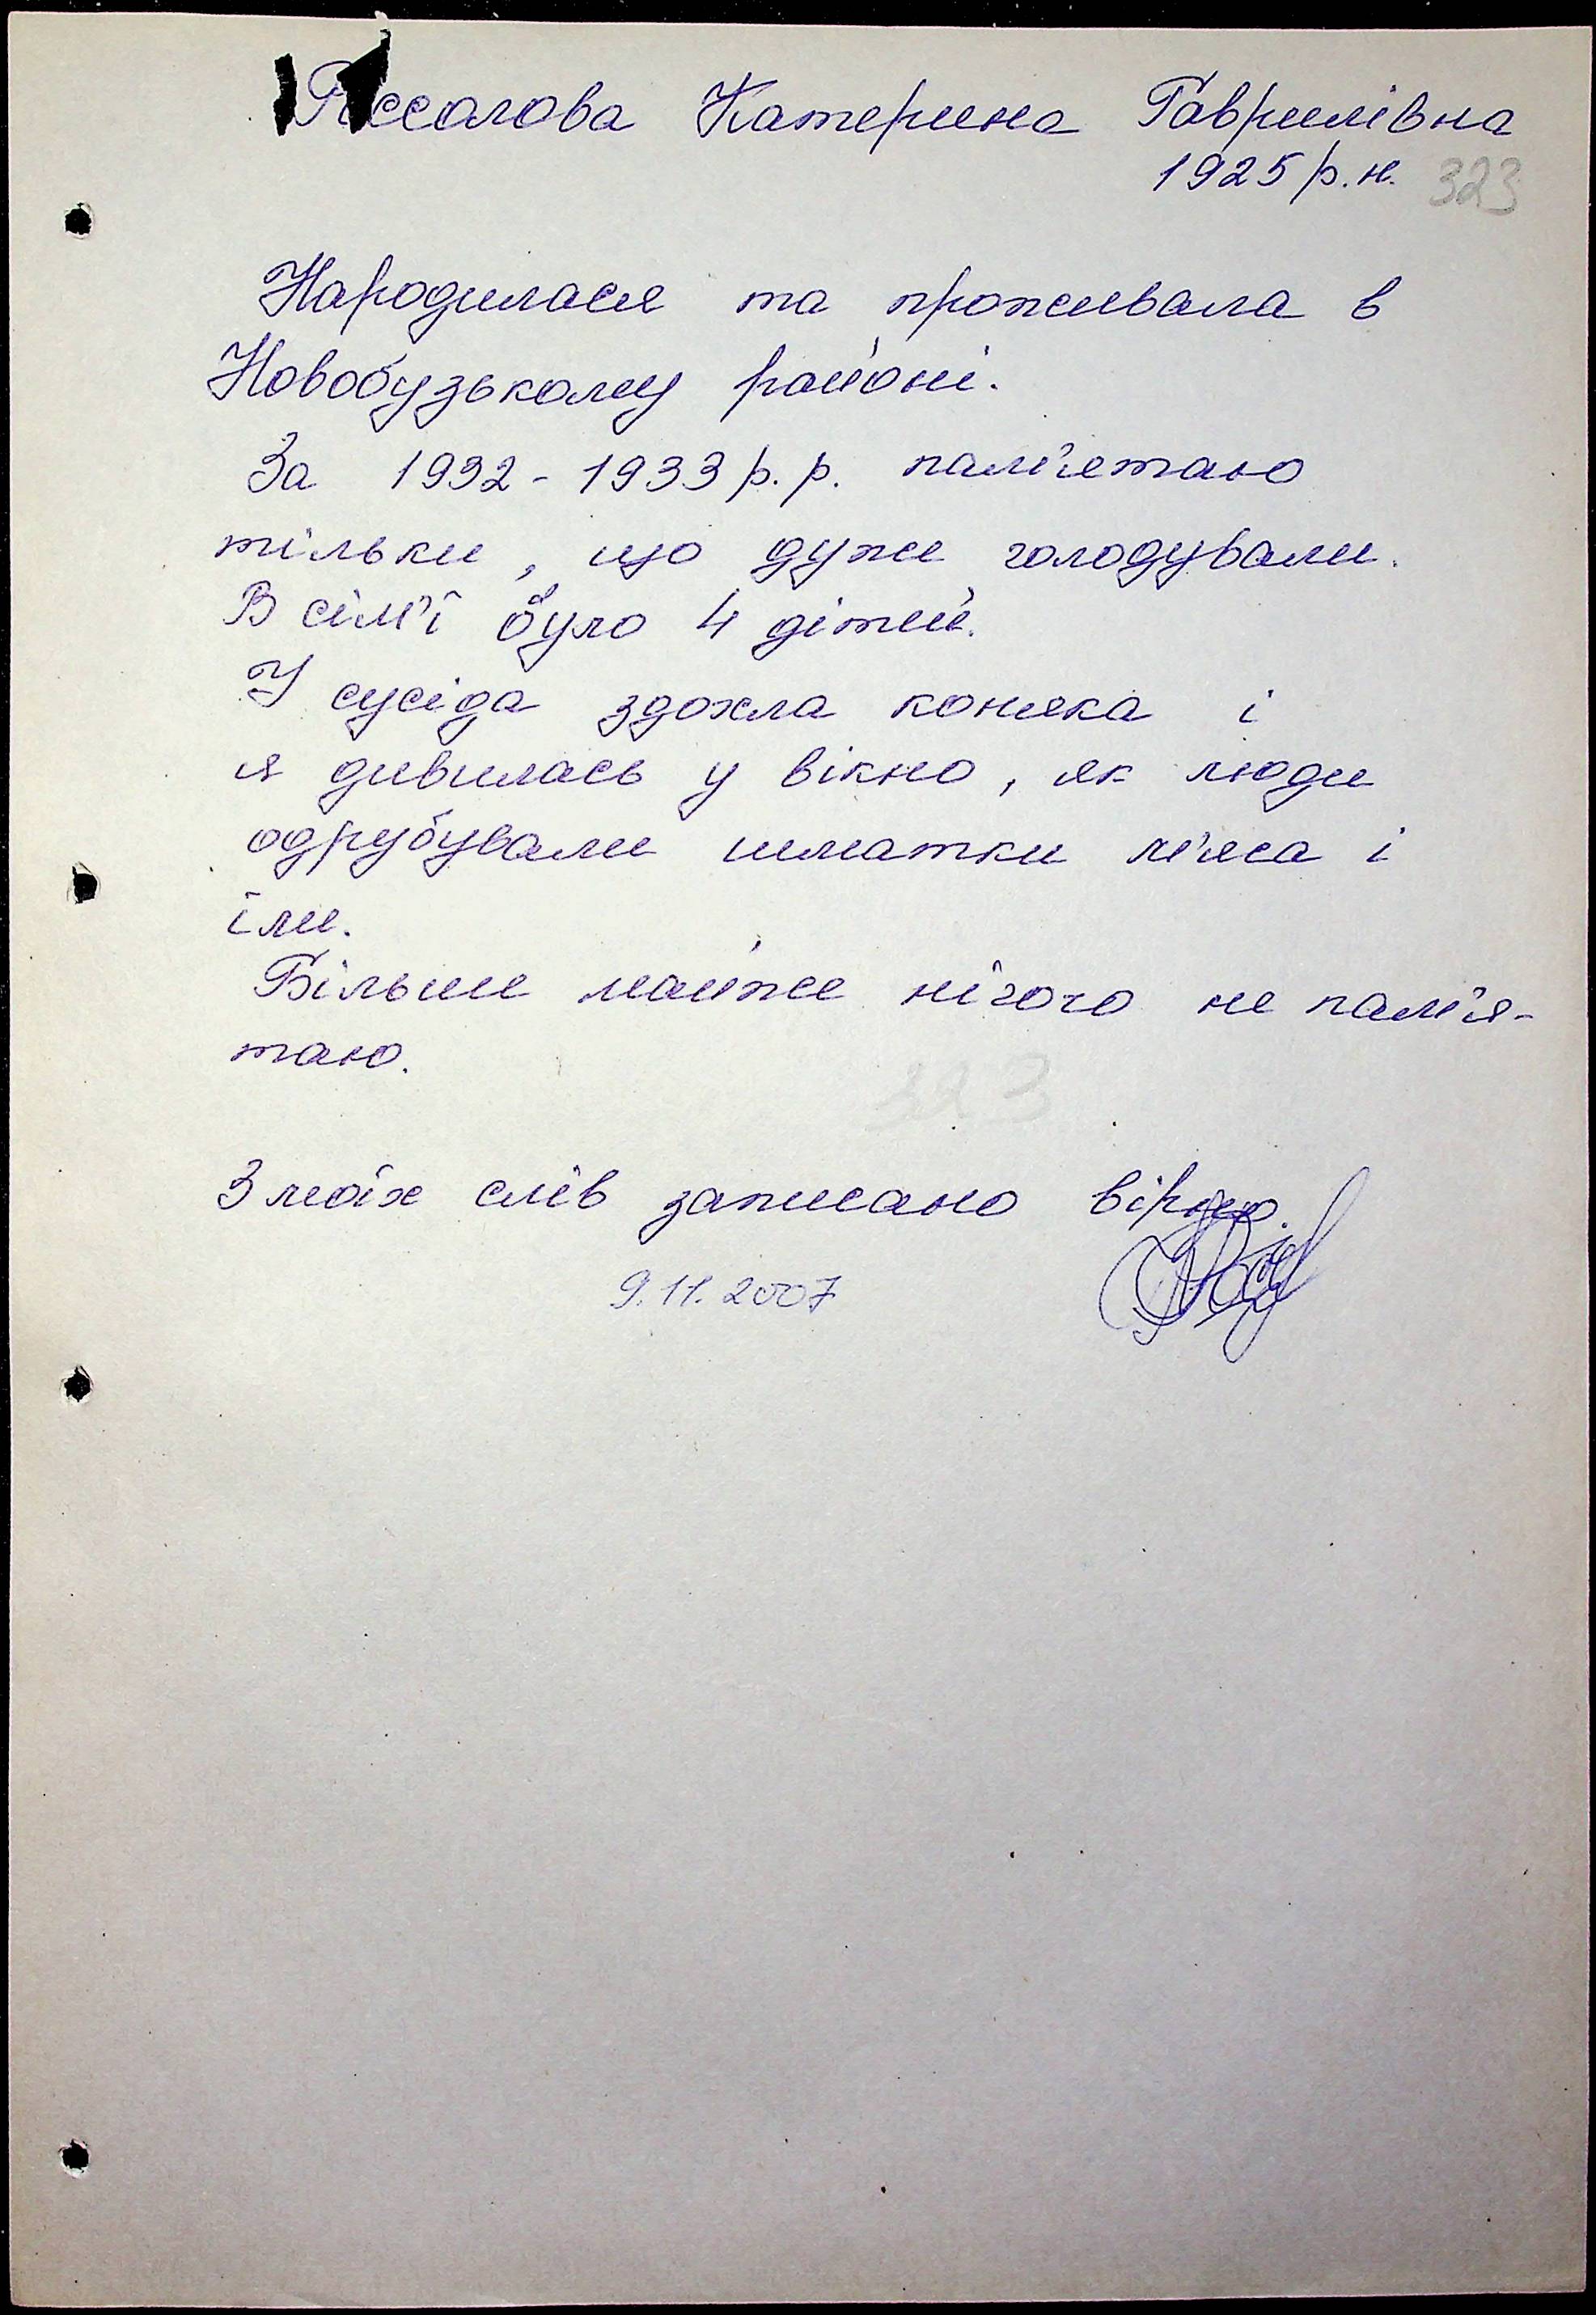 Катерина Гаврилівна
1925 р.н. 323
Народилася та проживала в
Новобузькому районі.
За 1932-1933 р.р. пам'ятаю
тільки, що дуже голодували.
В сім'ї було 4 дітей.
У сусіда здохла коняка і
я дивилась у вікно, як люди
одрубували шматки м'яса і
їли.
Більше майже нічого не пам'я-
таю.
323
З моїх слів записано вірно.
9.11.2007